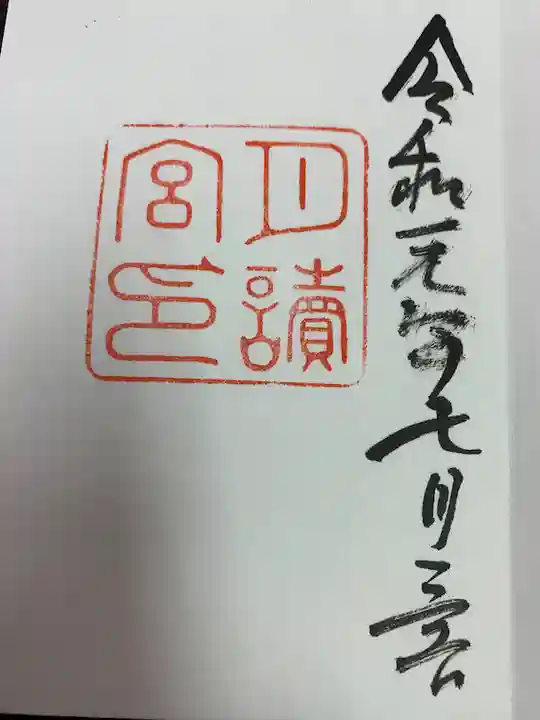 令和元年七月三日
月讀
宮印